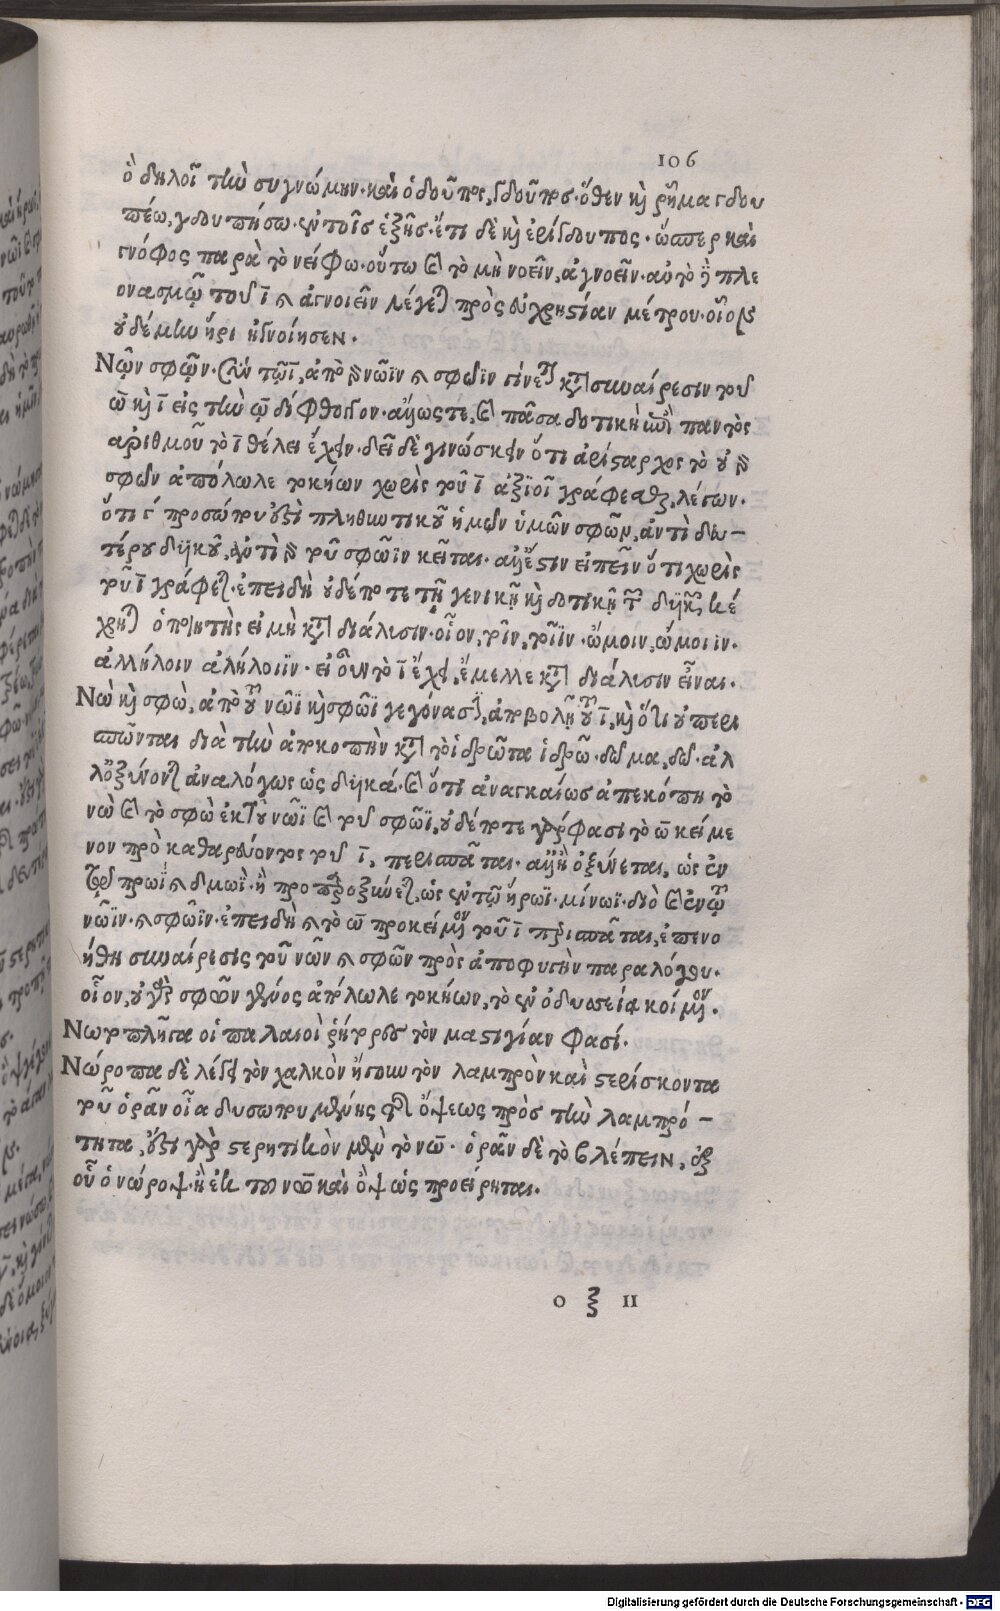 106
ὃ δηλοῖ τὴν συγνώμην. καὶ ὁ δοῦπος, γδοῦπος. ὅθεν καὶ ῥῆμα γδου
πέω, γδουπήσω. ἐν τοῖς ἑξῆς. ἔτι δὲ καὶ ἐρίγδουπος. ὥσπερ καὶ
γνόφος παρὰ τὸ νείφω. οὕτω καὶ τὸ μὴ νοεῖν, ἀγνοεῖν. αὐτὸ πλε
ονασμῷ τοῦ ῑ καὶ ἀγνοιεῖν λέγεται πρὸς εὐχρηστίαν μέτρου. οἷον
οὐδέ μιν ἥρη ἠγνοίησεν.
Νῷν σφῷν. σὺν τῷ ῑ, ἀπὸ τοῦ νῶϊν καὶ σφῶϊν γίνεται κατὰ συναίρεσιν τοῦ
ω̄ καὶ ῑ εἰς τὴν ῳ δίφθογγον. ἄλλως τε, καὶ πᾶσα δοτικὴ παντὸς
ἀριθμοῦ τὸ ῑ θέλει ἔχειν. δεῖ δὲ γινώσκειν ὅτι ἀρίσταρχος τὸ οὐ
σφῶν ἀπόλωλε τοκήων χωρὶς τοῦ ῑ ἀξιοῖ γράφεσθαι, λέγων.
ὅτι γ΄ προσώπου ἐστὶ πληθυντικοῦ ἡμῶν ὑμῶν σφῶν, ἀντὶ δευ-
τέρου δυϊκοῦ, ἀντὶ τοῦ σφῶϊν κεῖται. ἀλλ' ἔστιν εἰπεῖν ὅτι χωρὶς
τοῦ ῑ γράφεται. ἐπειδὴ οὐδέποτε τῇ γενικῇ καὶ δοτικῇ τῶν δυϊκῶν κέ
χρηται ὁ ποιητὴς εἰ μὴ κατὰ διάλυσιν. οἷον, τοῖν, τοῖϊν. ὤμοιν, ὤμοιϊν.
ἀλλήλοιν ἀλλήλοιϊν. εἰ οὖν τὸ ῑ ἔχει, ἔμελλε κατὰ διάλυσιν εἶναι.
Νὼ καὶ σφὼ, ἀπὸ τοῦ νῶϊ καὶ σφῶϊ γεγόνασι, ἀποβολῇ τοῦ ῑ, καὶ ὅτι οὐ περι
σπῶνται διὰ τὴν ἀποκοπὴν κατὰ τὸ ἱδρῶτα ἱδρῶ. δῶμα, δῶ. ἀλ
λ' ὀξύνονται ἀναλόγως ὡς δυϊκά. καὶ ὅτι ἀναγκαίως ἀπεκόπη τὸ
νὼ καὶ τὸ σφὼ ἐκ τοῦ νῶϊ καὶ τοῦ σφῶϊ, οὐδέποτε γάρ φασι τὸ ω̄ κείμε
νον πρὸ καθαρεύοντος τοῦ ῑ, περισπᾶται. ἀλλ' ἢ ὀξύνεται, ὡς ἐν
τῷ πρωῒ καὶ δμωῒ. ἢ προπαροξύνεται, ὡς ἐν τῷ ἥρωϊ. μίνωϊ. διὸ καὶ ἐν τῷ
νῶϊν. καὶ σφῶϊν. ἐπειδὴ καὶ τὸ ω̄ προκείμενον τοῦ ῑ περισπᾶται, ἐπενο
ήθη συναίρεσις τοῦ νῷν καὶ σφῷν πρὸς ἀποφυγὴν παραλόγου.
οἷον, οὐ γὰρ σφῶν γένος ἀπόλωλε τοκήων, τὸ ἐν ὀδυσσείᾳ κείμενον.
Νωροπλῆγα οἱ παλαιοὶ ῥήτορες τὸν μαστιγίαν φασί.
Νώροπα δὲ λέγει τὸν χαλκὸν ἤτοι τὸν λαμπρὸν καὶ στερίσκοντα
τοῦ ὁρᾶν οἷα δυσωπουμένης τῆς ὄψεως πρὸς τὴν λαμπρό-
τητα, ἔστι γὰρ στερητικὸν μὲν τὸ νω̄. ὁρᾶν δὲ τὸ βλέπειν, ἐξ
οὗ ὁ νώροψ. ἢ ἐκ τοῦ νω̄ καὶ ὂψ ὡς προείρηται.
ο ξ II
Digitalisierung gefördert durch die Deutsche Forschungsgemeinschaft - DFG